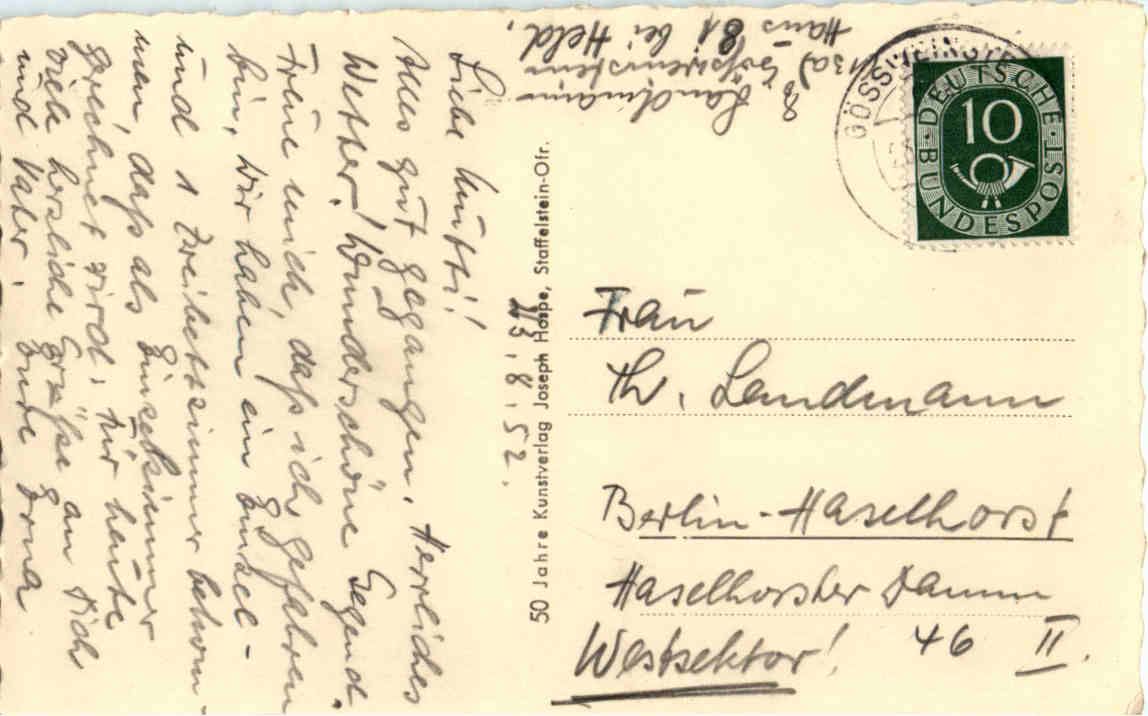 Landmann
(13a) Gößweinstein
Haus 81 bei Held.
Liebe Mutti!
Alles gut gegangen. Herrliches
Wetter! Wunderschöne Gegend.
Freue mich, daß ich gefahren
bin. Wir haben ein Einzel-
und 1 Zweibettzimmer bekom-
men, daß als Einzelzimmer
gerechnet wird. Für heute
viele herzliche Grüße an Dich
und Vater. Eure Erna
8. 52.
50 Jahre Kunstverlag Joseph Hospe, Staffelstein-Ofr.
DEUTSCHE BUNDESPOST
10
Frau
Th. Landmann
Berlin-Haselhorst
Haselhorster Damm
46 II.
Westsektor!